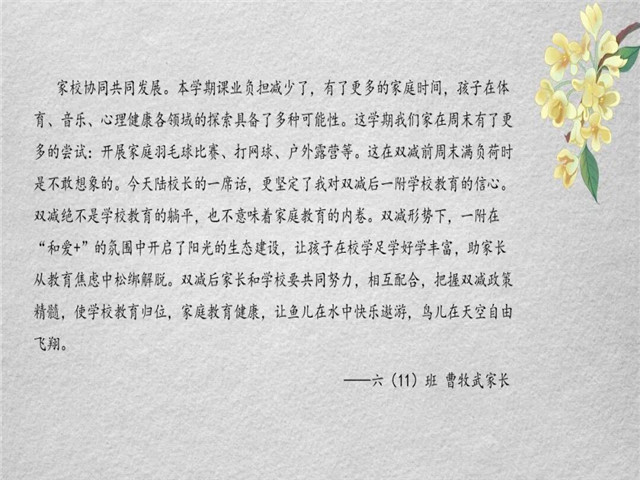 家校协同共同发展。本学期课业负担减少了，有了更多的家庭时间，孩子在体
育、音乐、心理健康各领域的探索具备了多种可能性。这学期我们家在周末有了更
多的尝试：开展家庭羽毛球比赛、打网球、户外露营等。这在双减前周末满负荷时
是不敢想象的。今天陆校长的一席话，更坚定了我对双减后一附学校教育的信心。
双减绝不是学校教育的躺平，也不意味着家庭教育的内卷。双减形势下，一附在
“和爱+”的氛围中开启了阳光的生态建设，让孩子在校学足学好学丰富，助家长
从教育焦虑中松绑解脱。双减后家长和学校要共同努力，相互配合，把握双减政策
精髓，使学校教育归位，家庭教育健康，让鱼儿在水中快乐遨游，鸟儿在天空自由
飞翔。
——六（11）班 曹牧武家长